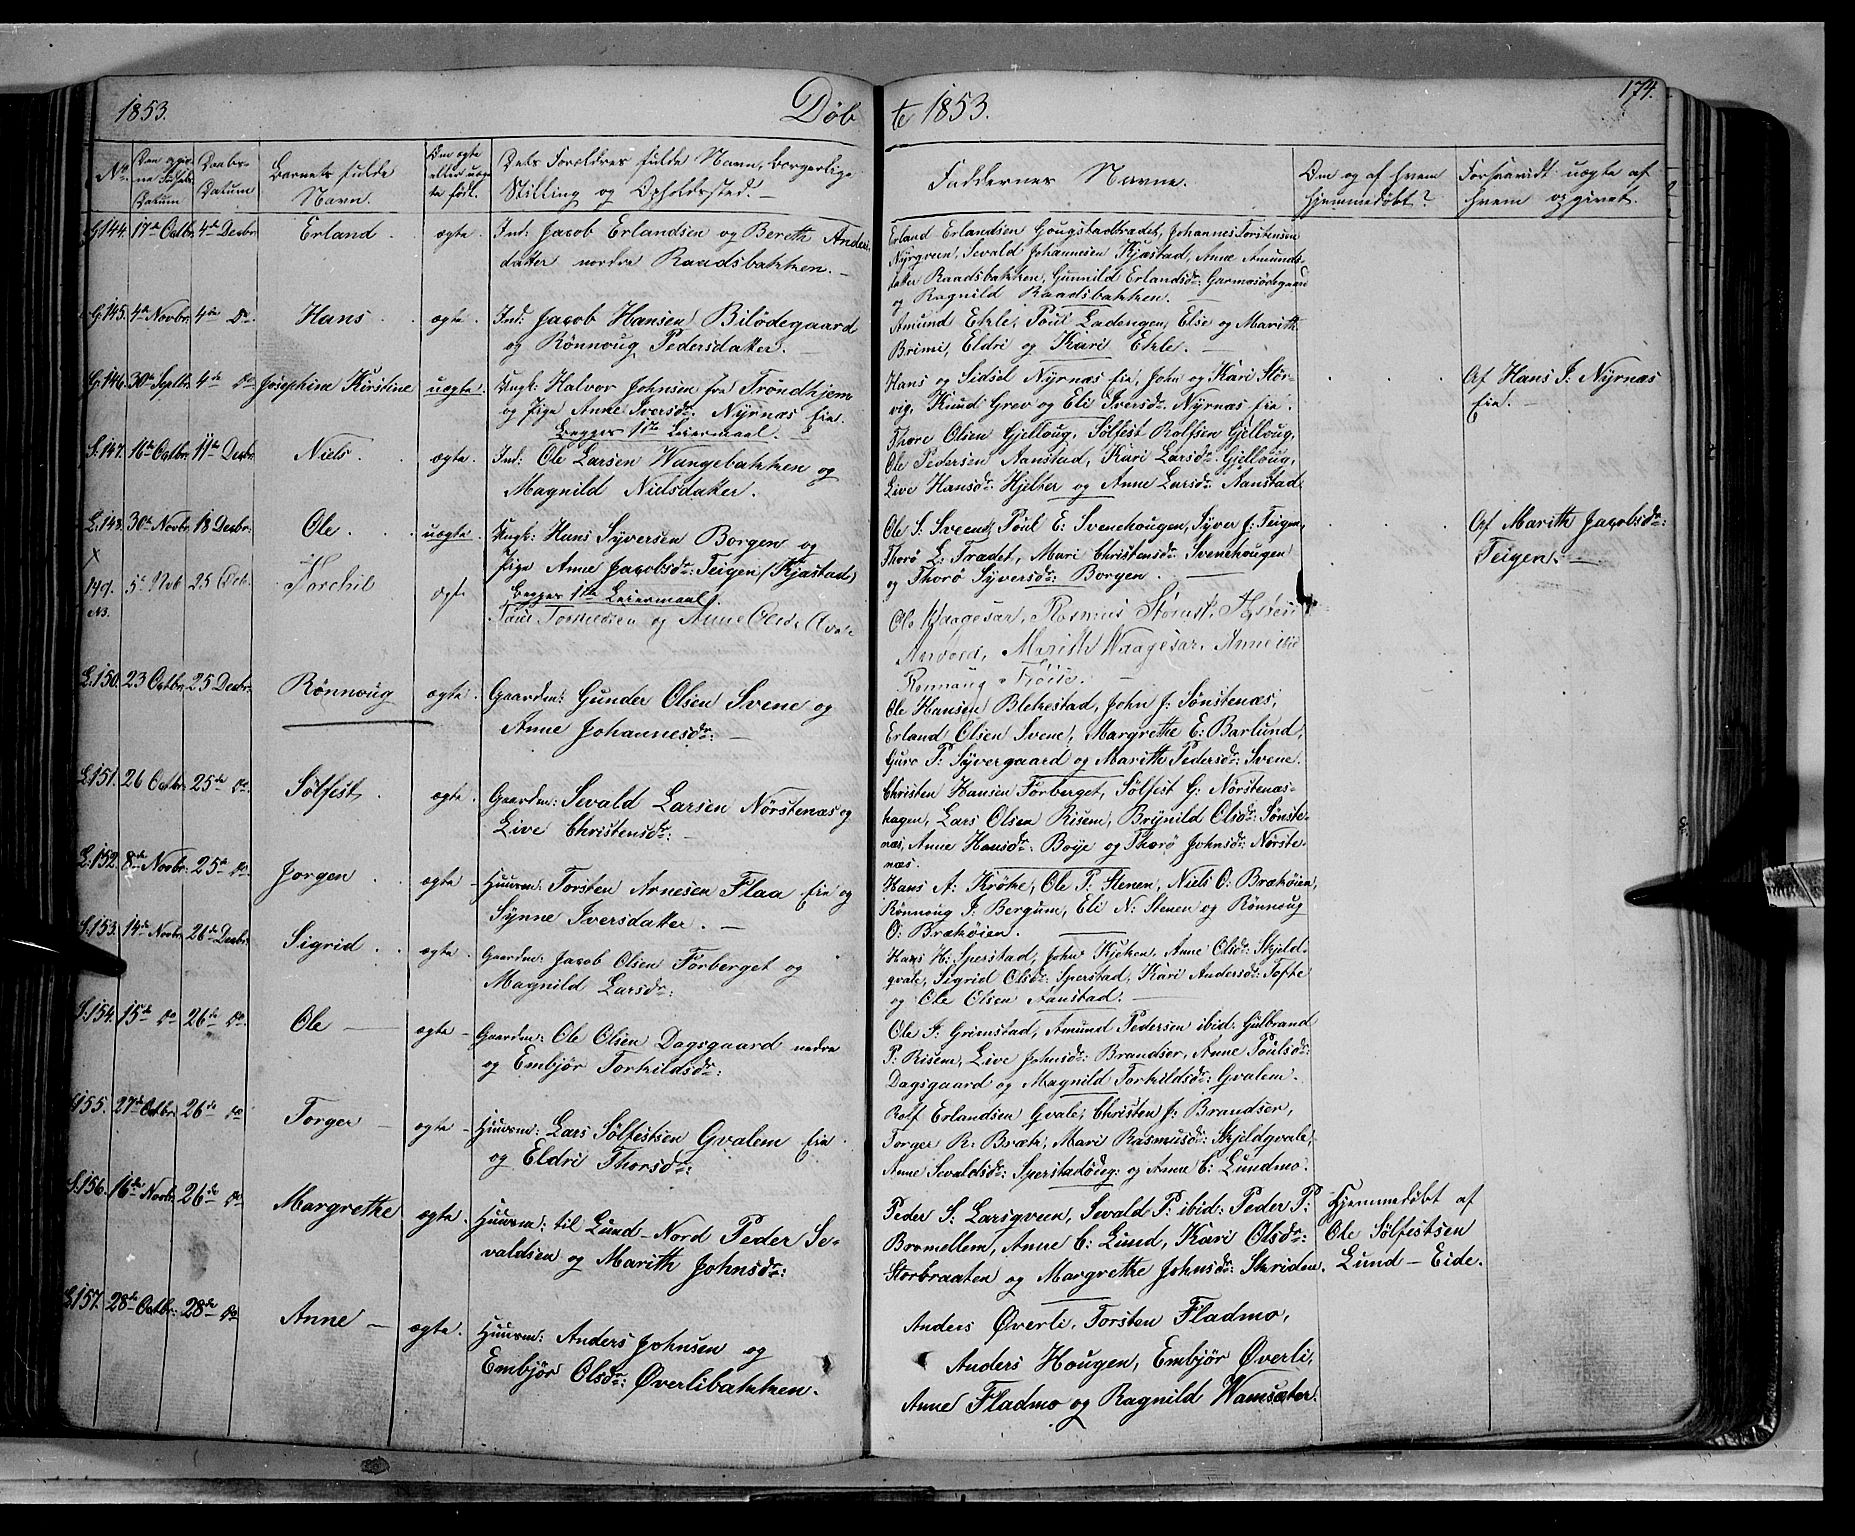 1853.
Døb
te 1853.
174.
No.
Den opgivne Fødsels Datum
Daabs-Datum
Barnets fulde Navn.
Om ægte eller uægte født.
Dets Forældres fulde Navn, borgerlige Stilling og Opholdssted.
Faddernes Navne.
Om og af hvem hjemmedøbt?
Forsaavidt uægte af hvem opgivet.
G.144. 17de Octbr. 4de Decbr. Erland. ægte. Ind: Jacob Erlandsen og Bereth Anders-
datter nordre Raadsbakken.
Erland Erlandsen Gougstadtrædet, Johannes Torstensen
Nyrgveen, Sevald Johannesen Kjæstad, Anne Amunds-
datter Raadsbakken, Gunnild Erlandsdr: Garmosødegaard
og Ragnild Raadsbakken.
G.145. 4de Novbr. 4de Do Hans. ægte. Ind: Jacob Hansen Bilødegaard
og Rønnoug Pedersdatter.
Amund Ekle, Poul Ladengen, Else og Marith
Brimi, Eldri og Kari Ekle.
G.146. 30te Septbr. 4de Do Josephine Kirstine uægte. Ungk: Halvor Johnsen fra Trondhjem
og Pige Anne Iversdr: Nyrnæs Eie.
Begges 1ste Leiermaal.
Hans og Sidsel Nyrnæs Eie, John og Kari Stor-
vig, Knud Grev og Eli Iversdr: Nyrnæs Eie.
Af Hans J: Nyrnæs
Eie.
S.147. 16de Octbr. 11te Decbr. Niels. ægte. Ind: Ole Larsen Wangebakken og
Magnild Nielsdatter.
Thore Olsen Gjelloug, Sølfest Rolfsen Gjelloug,
Ole Pedersen Aanstad, Kari Larsdr: Gjelloug,
Live Hansdr: Hjelter og Anne Larsdr: Aanstad
L.148. 30te Novbr. 18 Decbr. Ole. uægte. Ungk: Hans Syversen Borgen og
Pige Anne Jacobsdr: Teigen (Kjæstad)
Begges 1ste Leiermaal.
Ole S. Sveen, Poul E. Svenehougen, Syver J. Teigen,
Thorø L: Trædet, Mari Christensdr: Svenehougen
og Thorø Syversdr: Borgen.
Af Marith Jacobsdr:
Teigen.
X
149. 5te Nob 25 Torchil ægte Paul og Anne Olsdr
NB.
Ole Waagesar, Rasmus
Marith Waagesar, Anne ibid
Rønnaug
L.150. 23 Octbr. 25 Decbr. Rønnoug ægte. Gaardm: Gunder Olsen Svene og
Anne Johannesdr:
Ole Hansen Blekestad, John J: Sønstenæs,
Erland Olsen Svene, Margrethe E: Barlund,
Guro P: Syvergaard og Marith Pedersdr: Svene.
L.151. 26 Octbr. 25de Do. Sølfest. ægte. Gaardm: Sevald Larsen Nørstenæs og
Live Christensdr:
Christen Hansen Forberget, Sølfest G: Nørstenæs-
hagen, Lars Olsen Risem, Brynild Olsdr: Sønste-
næs, Anne Hansdr: Boye og Thorø Johnsdr: Nørste-
næs.
L.152. 8de Novbr. 25de Do Jørgen. ægte Huusm: Torsten Arnesen Flaa Eie og
Synne Iversdatter.
Hans A: Krøke, Ole P: Stenen, Niels O: Brækøien,
Rønnoug J: Bergum, Eli N: Stenen og Rønnoug
O: Brækøien.
S.153. 14de Novbr. 26de Decbr. Sigrid. ægte. Gaardm: Jacob Olsen Forberget og
Magnild Larsdr:
Hans H: Sperstad, John Kjeken, Anne Olsdr: Skjeld-
gvale, Sigrid Olsdr: Sperstad, Kari Andersdr: Tofte
og Ole Olsen Aanstad.
S.154. 15de Do 26de Do. Ole ægte Gaardm: Ole Olsen Dagsgaard nedre
og Embjør Torkildsdr:
Ole J: Grimstad, Amund Pedersen ibid: Gulbrand
P: Risem, Live Johnsdr: Brandsar, Anne Poulsdr:
Dagsgaard og Magnild Torkildsdr: Gvalem.
S.155. 27de Octbr. 26de Do Torger ægte Huusm: Lars Sølfestsen Gvalem Eie
og Eldri Thorsdr:
Rolf Erlandsen Gvale, Christen J: Brandsar,
Torger R: Bræk, Mari Rasmusdr: Skjeldgvale,
Anne Sevaldsdr: Sperstadøug: og Anne C: Lundmo.
S.156. 16de Novbr. 26de Do Margrethe ægte. Huusm: til Lund-Nord Peder Se-
valdsen og Marith Johnsdr:
Peder S: Larsgveen, Sevald P: ibid: Peder P:
Bromellem, Anne C: Lund, Kari Olsdr:
Storbraaten og Margrethe Johnsdr: Skriden.
Hjemmedøbt af
Ole Sølfestsen
Lund-Eide.
L.157. 28de Octbr. 28de Do Anne ægte. Huusm: Anders Johnsen og
Embjør Olsdr: Øverlibakken.
Anders Øverli, Torsten Fladmo,
Anders Hougen, Embjør Øverli,
Anne Fladmo og Ragnild Wamsæter.